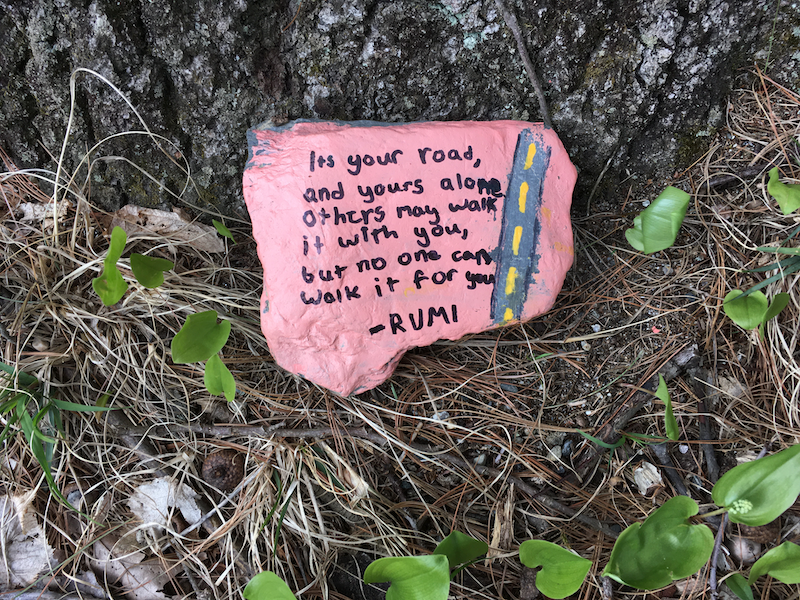 Its your road,
and yours alone
others may walk
it with you,
but no one can
walk it for you
-RUMI